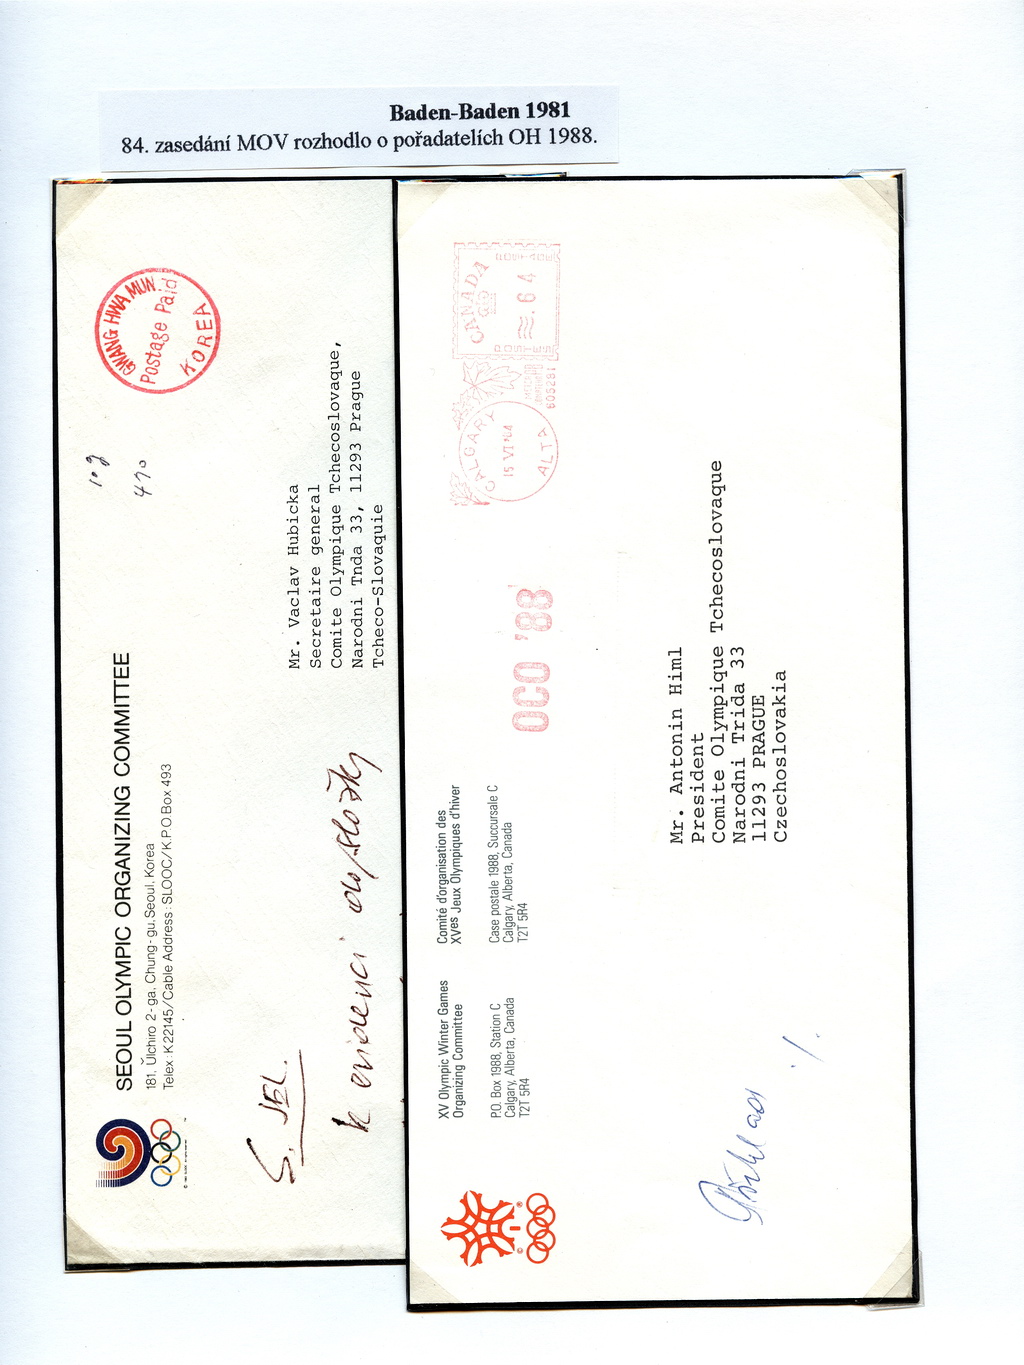 Baden-Baden 1981
84. zasedání MOV rozhodlo o pořadatelích OH 1988.
SEOUL OLYMPIC ORGANIZING COMMITTEE
181, Ŭlchiro 2-ga, Chung-gu, Seoul, Korea
Telex: K22145/Cable Address: SLOOC/K.P.O.Box 493
GWANG HWA MUN.
Postage Paid
KOREA
470
Mr. Vaclav Hubicka
Secretaire general
Comite Olympique Tchecoslovaque,
Narodni Tnda 33, 11293 Prague
Tcheco-Slovaquie
S. JEL.
k evidenci
XV Olympic Winter Games
Organizing Committee
P.O. Box 1988, Station C
Calgary, Alberta, Canada
T2T 5R4
Comité d'organisation des
XVes Jeux Olympiques d'hiver
Case postale 1988, Succursale C
Calgary, Alberta, Canada
T2T 5R4
OCO '88
CALGARY
15 VI '84
ALTA
CANADA
.64
605281
Mr. Antonin Himl
President
Comite Olympique Tchecoslovaque
Narodni Trida 33
11293 PRAGUE
Czechoslovakia